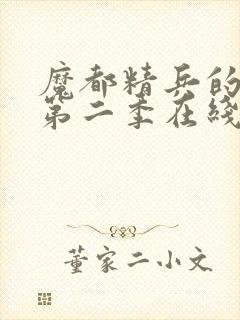 魔都精兵的
第二季在线
董家二小文